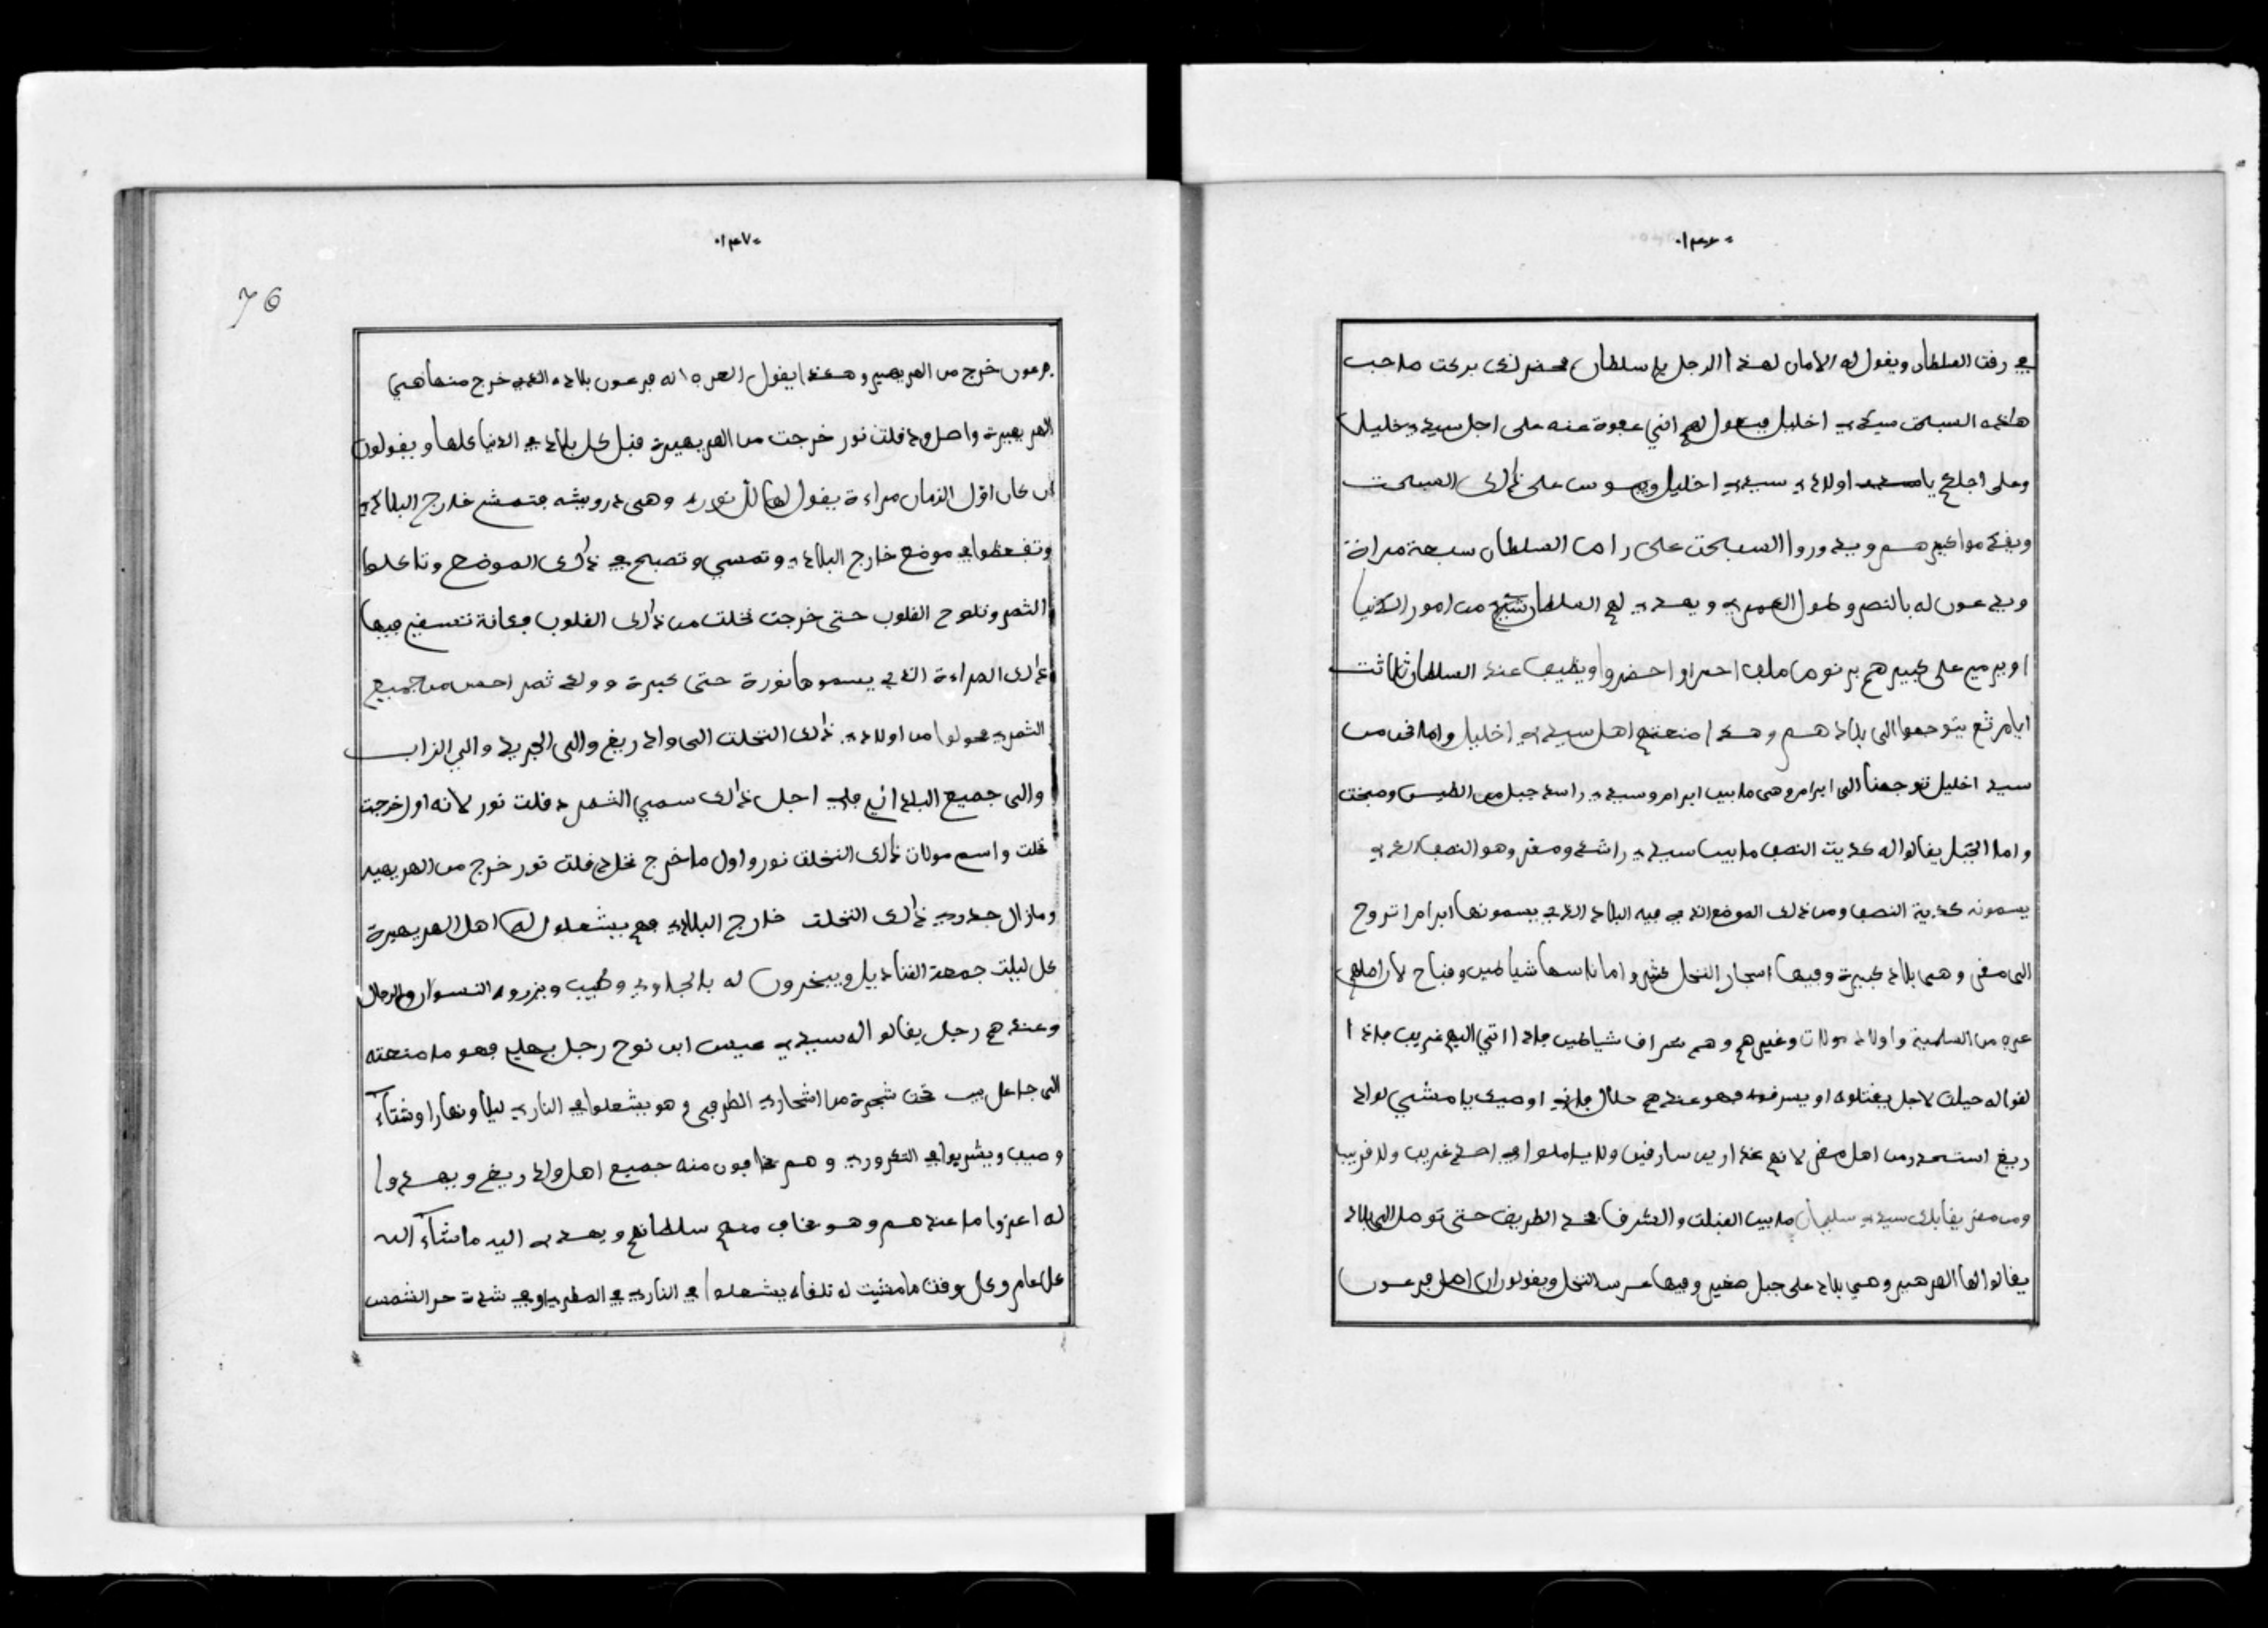 ٠١٣٦٠
في رقت السلطان ويقول له الامان لهذا الرجل يا سلطان بركت صاحب
هاذه السبحت سيدي اخليل فيقول لهم انني عفوة عنه على اجل سيدي خليل
وعلى اجلكم يا اولادي سيدي اخليل على ذالك السبحت
ويدوروا السبحت على راس السلطان سبعة مرات
ويدعون له بالنصر وطول العمر ويهدي لهم السلطان من امور الدنيا
او يرمي على كبيرهم برنوس ملف احمر او اخضر عند السلطان ثلاثت
ايام ثم يتوجهوا الى بلادهم وهذا منعتهم اهل سيدي اخليل واما نحن من
سيد اخليل توجهنا الى ابرام وهي ما بين ابرام وسيدي راسد جبل من الطين
واما الجبل يقالوا له كديت النصف ما بين سيدي راشد ومغر وهو النصف الذي
يسمونه كدية النصف ومن ذلك الموضع الذي فيه البلاد الذي يسمونها ابرام اتروح
الى مغر وهي بلاد كبيرة وفيها اسجار النخل كثير واما ناسها شياطين وقباح لان اصلهم
عرب من السلمية واولاد مولات وغيرهم وهم سراف شياطين فاذا اتي اليهم غريب
لقوا له حيلت لاجل يقتلوه او يسرقوه فهو عندهم حلال اوصيك يا مشي لواد
ريغ استحذر من اهل مغر لانهم غدارين سارقين ولا في احد غريب ولا قريب
ومن مغر يقابلك سيدي سليمان ما بين القبلت والشرق الطريق حتى توصل الى بلاد
يقالوا لها الهرهير وهي بلاد على جبل صغير وفيها غرس النخل ويقولون ان اصل فرعون
٠١٣٧٠
76
فرعون خرج من الهريهير وهكذا يقول العرب انه فرعون بلاده الذي خرج منها هي
الهريهيرة واصل دقلت نور خرجت من الهريهيرة قبل كل بلاد في الدنيا كلها ويقولون
ان كان اول الزمان مراءة يقول لها لل نورة وهي درويشه فتمشي خارج البلاد
وتقعد في موضع خارج البلاد وتمسي وتصبح في ذالك الموضع وتاكلوا
الثمر وتلوح القلوب حتى خرجت نخلت من ذالك القلوب فكانة تسقي فيها
ذالك المراءة الذي يسموها نورة حتى كبرة وولد ثمر احسن من جميع
الثمر فحولوا من اولاد ذالك النخلت الى واد ريغ والى الجريد والي الزاب
والى جميع البلدان فلي اجل ذالك سمي الثمر دقلت نور لانه اول خرجت
نخلت واسم مولات ذالك النخلت نور واول ما خرج نخل دقلت نور خرج من الهريهير
ومازال جدر ذالك النخلت خارج البلاد فهم يشعلوا له اهل الهريهيرة
كل ليلت جمعة القناديل ويبخرون له بالجاوي وطيب ويزروه النسوان والرجال
وعندهم رجل يقالوا له سيدي عيس ابن نوح رجل فهو ما منعته
الى جاعل بيت تحت شجرة من اشجار الطرفى وهو يشعلوا في النار ليلا ونهارا وشتاء
وصيف ويشربوا في التكروري وهم خافون منه جميع اهل واد ريغ ويهدوا
له اعز ما عندهم وهو يخاف منه سلطانهم ويهدي اليه ما شاء الله
كل عام وكل وقت ما مشيت له تلقاه يشعلوا في النار في المطر وفي شدة حر الشمس